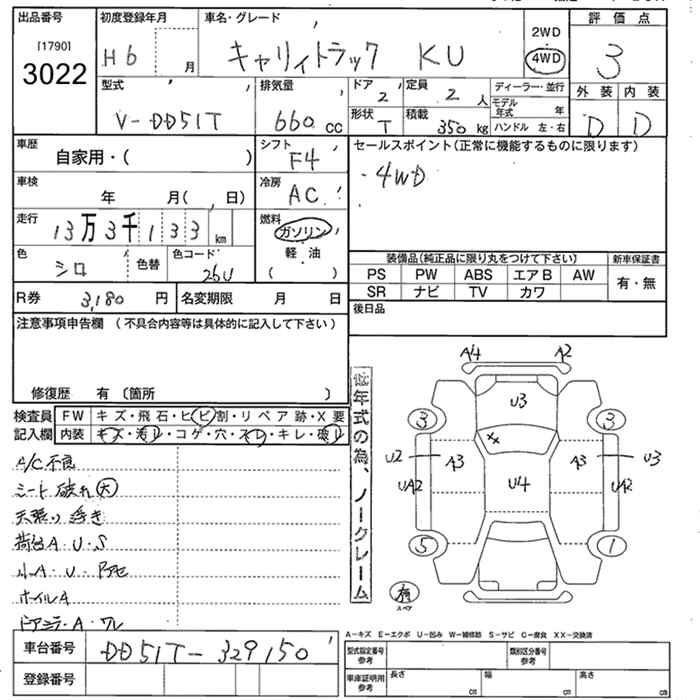 出品番号 初度登録年月 車名・グレード 評価点
[1790]
3022
H6 月
キャリィトラック KU
2WD
4WD
3
型式 排気量 ドア 定員 ディーラー・並行 外装 内装
V-DD51T
660 cc
2
2 人
モデル年式 年
ハンドル 左・右
形状 T
積載 350 kg
D D
車歴 シフト セールスポイント(正常に機能するものに限ります)
自家用・( )
F4
・4WD
車検 冷房
年 月( , 日)
AC
走行 燃料
13万3千133 km
ガソリン
軽油
( )
色 色替 色コード
シロ
26U
装備品(純正品に限り丸をつけて下さい) 新車保証書
PS PW ABS エアB AW 有・無
SR ナビ TV カワ
R券 3,180 円 名変期限 月 日
後日品
注意事項申告欄 (不具合内容等は具体的に記入して下さい)
修復歴 有 〔箇所 〕
検査員 FW キズ・飛石・ヒビ割・リペア跡・X要
記入欄 内装 キズ・汚レ・コゲ・穴・スレ・キレ・破レ
A/C不良
シート破れ大
天張り浮き
荷台A・U・S
小A・U・
ホイルA
ドアミラーA・ワレ
低年式の為、ノークレーム
A4 A2
U3
3 3
XX
U2 A3 A3 U3
UA2 U4 UA2
5 1
有
スペア
車台番号 DD51T-329150
登録番号
A-キズ E-エクボ U-凹み W-補修跡 S-サビ C-腐食 XX-交換済
型式指定番号 参考 類別区分番号 参考
車庫証明用 参考 長さ cm 幅 cm 高さ cm